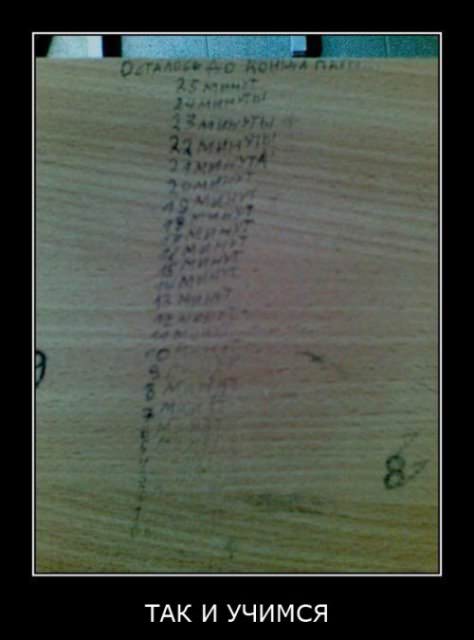 ОСТАЛОСЬ ДО КОНЦА ПАРЫ
25 МИНУТ
24 МИНУТЫ
23 МИНУТЫ
22 МИНУТЫ
21 МИНУТА
20 МИНУТ
19 МИНУТ
18 МИНУТ
17 МИНУТ
16 МИНУТ
15 МИНУТ
14 МИНУТ
13 МИНУТ
12 МИНУТ
11
10
9
8
7
8
ТАК И УЧИМСЯ